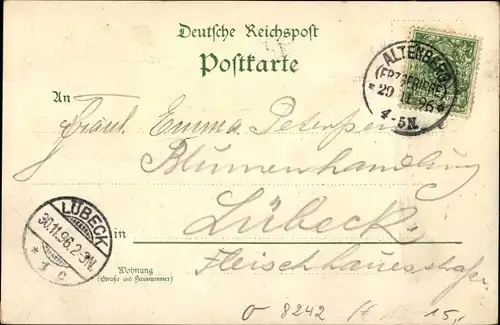 Deutsche Reichspost
Postkarte
ALTENBERG
(ERZGEBIRGE)
29 11 96
4-5N.
An
Fräul. Emma Petersen
Blumenhandlung
LÜBECK
30.11.96.2-3N.
1 c
in Lübeck.
Wohnung
(Straße und Hausnummer)
Fleischhauerstraße
8242
15,-